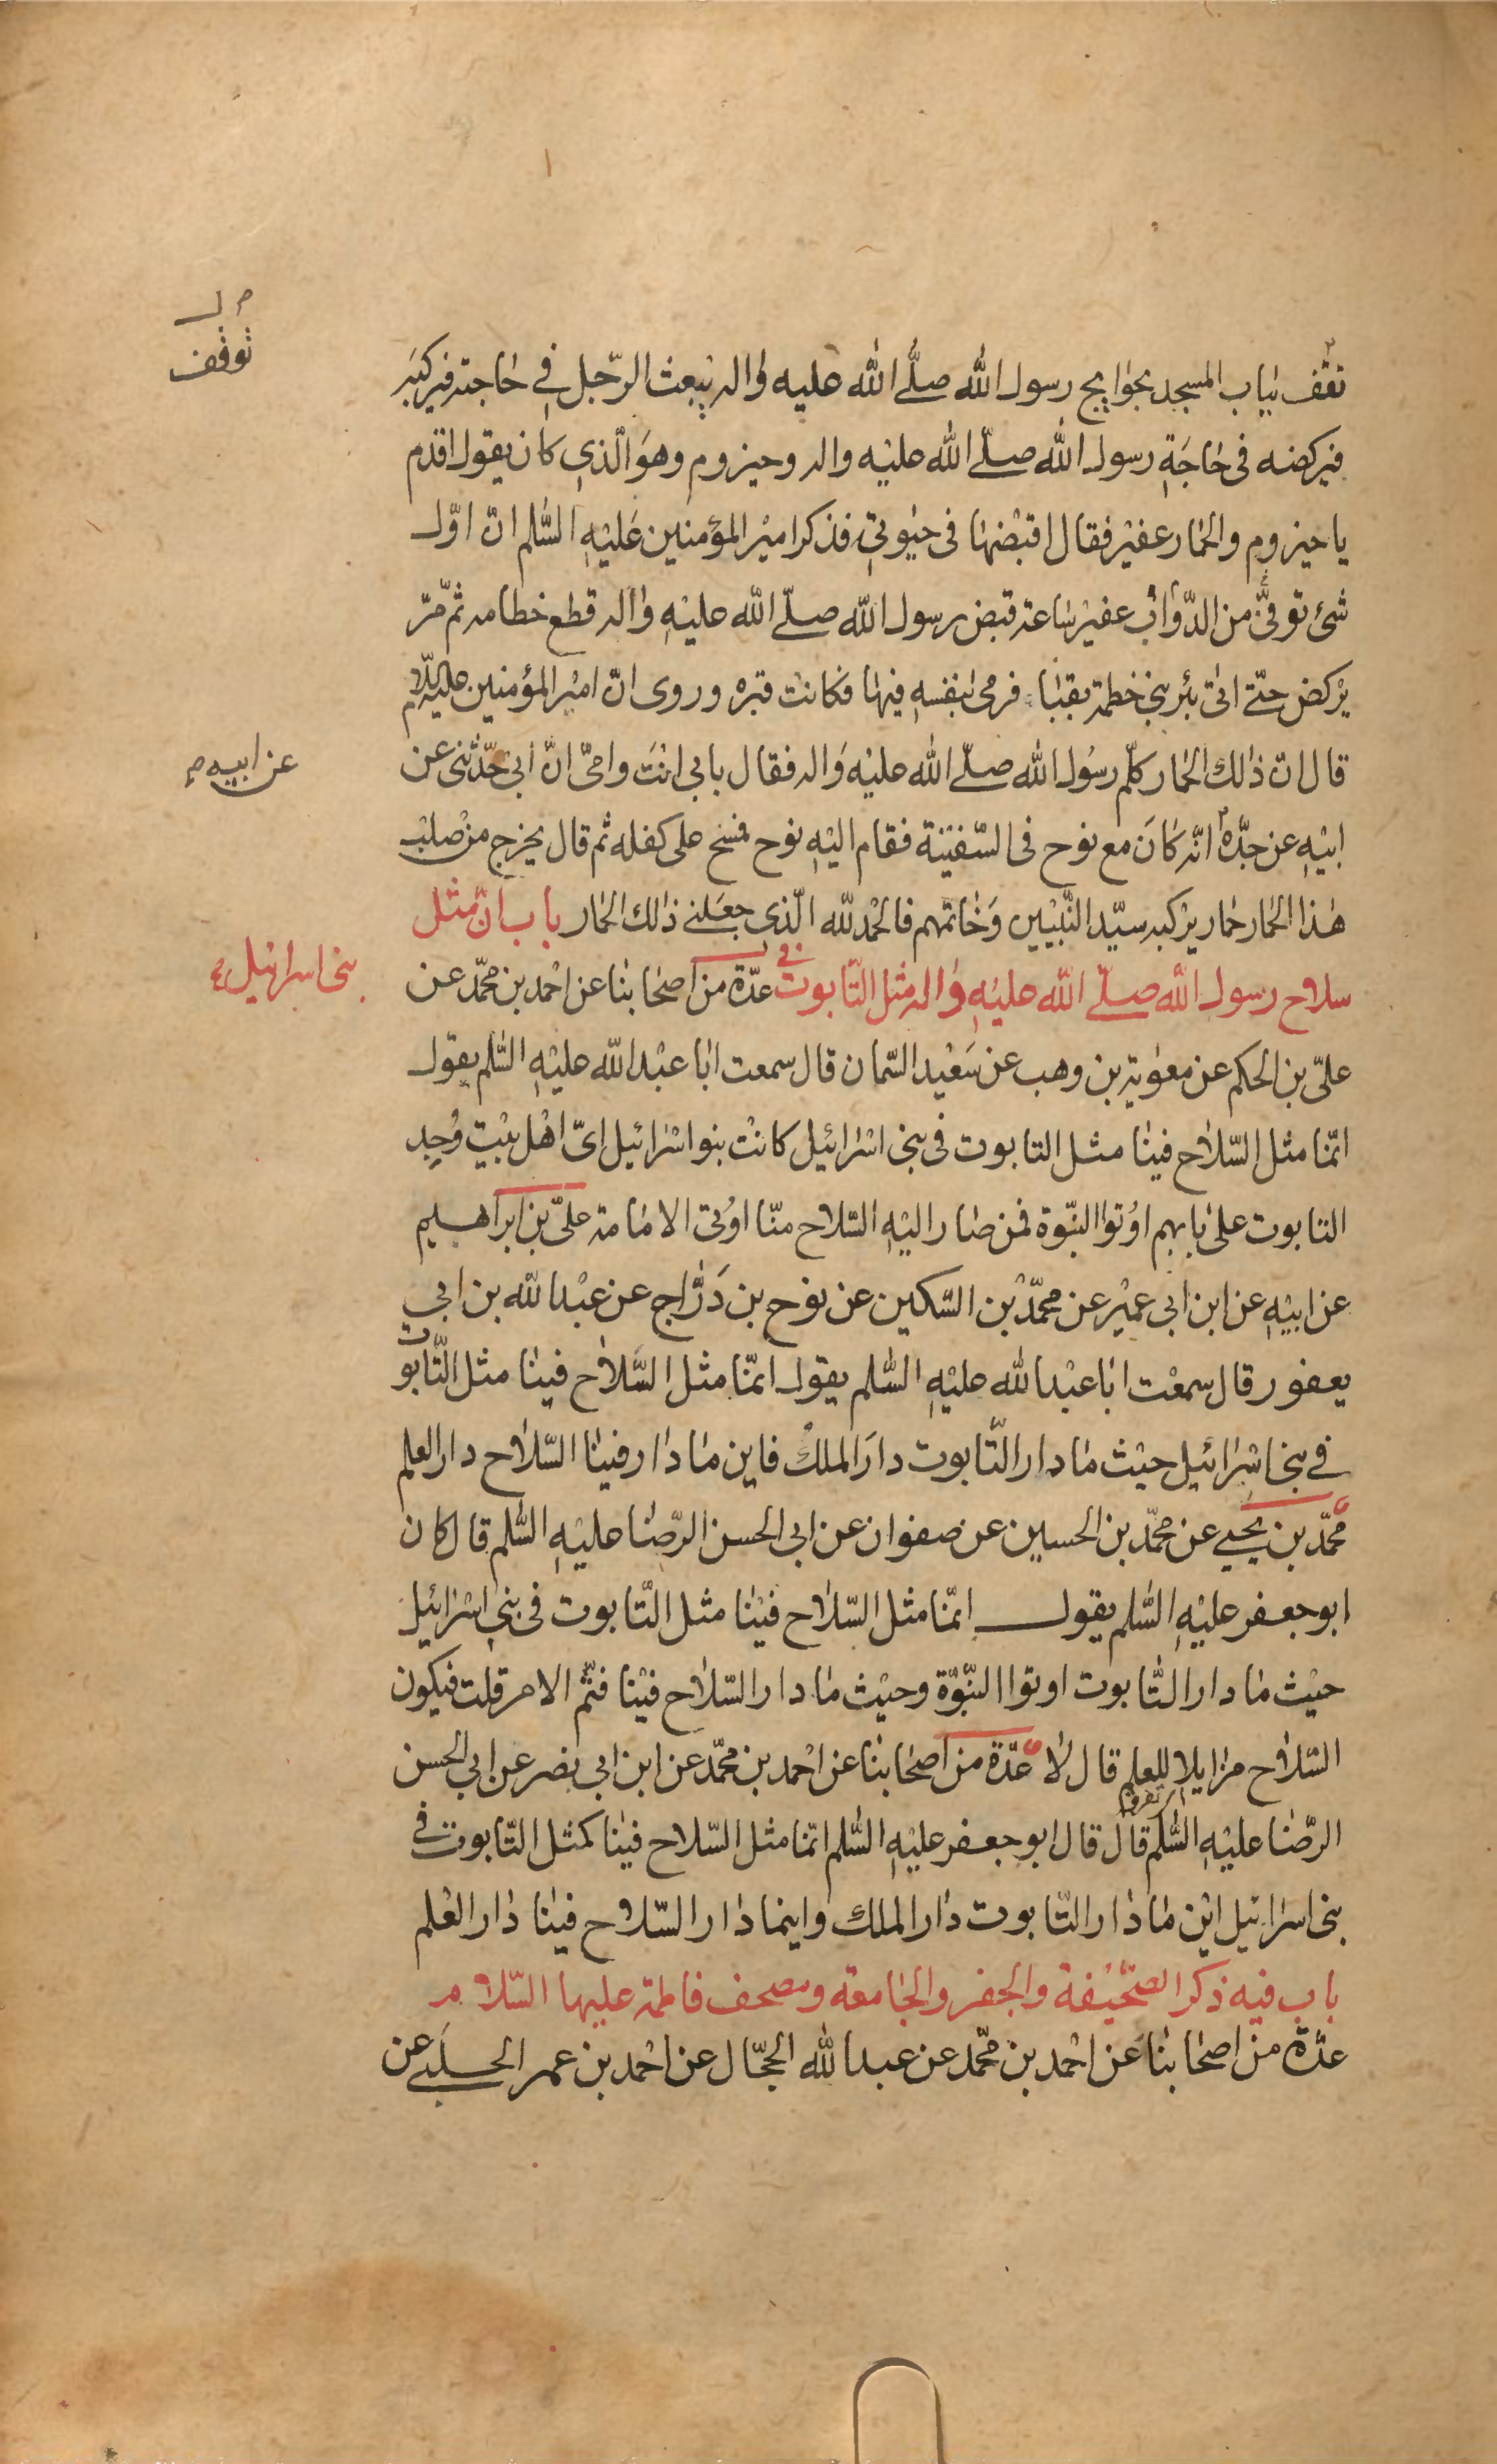 تقف بباب المسجد بحوايج رسول الله صلّى الله عليه واله يبعث الرّجل في حاجته فيركبه
فيركضه فى حاجة رسول الله صلّى الله عليه واله وحيزوم وهو الّذي كان يقول اقدم
يا حيزوم والحمار عفير فقال اقبضها فى حيوتي فذكر امير المؤمنين عليه السّلم انّ اوّل
شئ توفّى من الدّوابّ عفير ساعة قبض رسول الله صلّى الله عليه واله قطع خطامه ثمّ مرّ
يركض حتّى اتى بئر بنى خطمة بقبا فرمى بنفسه فيها فكانت قبره وروى انّ امير المؤمنين عليه السّلام
قال ان ذلك الحمار كلّم رسول الله صلّى الله عليه واله فقال بابي انت وامّي انّ ابي حدّثنى عن
ابيه عن جدّه انّه كان مع نوح فى السّفينة فقام اليه نوح فمسح على كفله ثم قال يخرج من صلب
هذا الحمار حمار يركبه سيّد النّبيين وخاتمهم فالحمد لله الّذي جعلنى ذلك الحمار باب انّ مثل
سلاح رسول الله صلّى الله عليه واله مثل التّابوت فى عدّة من اصحابنا عن احمد بن محمّد عن
علىّ بن الحكم عن معوية بن وهب عن سعيد السّمان قال سمعت ابا عبد الله عليه السّلم يقول
انّما مثل السّلاح فينا مثل التابوت فى بنى اسرائيل كانت بنو اسرائيل اىّ اهل بيت وجد
التابوت على بابهم اوتوا النبّوة فمن صار اليه السّلاح منّا اوتى الامامة علىّ بن ابراهيم
عن ابيه عن ابن ابى عمير عن محمّد بن السّكين عن نوح بن درّاج عن عبد الله بن ابي
يعفور قال سمعت ابا عبد الله عليه السّلم يقول انمّا مثل السّلاح فينا مثل التّابوت
في بنى اسرائيل حيث ما دار التّابوت دار الملك فاين ما دار فينا السّلاح دار العلم
محمّد بن يحيى عن محمّد بن الحسين عن صفوان عن ابى الحسن الرّضا عليه السّلم قال كان
ابو جعفر عليه السّلم يقول انمّا مثل السّلاح فينا مثل التّابوت فى بني اسرائيل
حيث ما دار التّابوت اوتوا النبّوّة وحيث ما دار السّلاح فينا فثمّ الامر قلت فيكون
السّلاح مزايلا للعلم قال لا عدّة من اصحابنا عن احمد بن محمّد عن ابن ابي نصر عن ابي الحسن
الرّضا عليه السّلم قال قال ابو جعفر عليه السّلم انمّا مثل السّلاح فينا كمثل التّابوت في
بنى اسرائيل اين ما دار التّابوت دار الملك واينما دار السّلاح فينا دار العلم
باب فيه ذكر الصّحيفة والجفر والجامعة ومصحف فاطمة عليها السّلام
عدّة من اصحابنا عن احمد بن محّمد عن عبد الله الحجّال عن احمد بن عمر الحلبي عن
توقف
عن ابيه
بنى اسرائيل